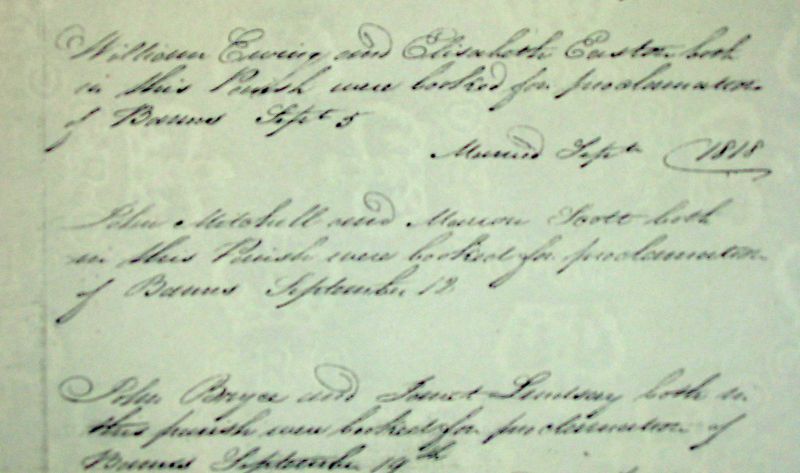 William Ewing and Elisabeth Easton both
in this Parish were booked for proclamation
of Banns Sept 5
Married Sept 1818
John Mitchell and Marion Scott both
in this Parish were booked for proclamation
of Banns September 12
John Bryce and Janet Lindsay both in
this parish were booked for proclamation of
Banns September 19th